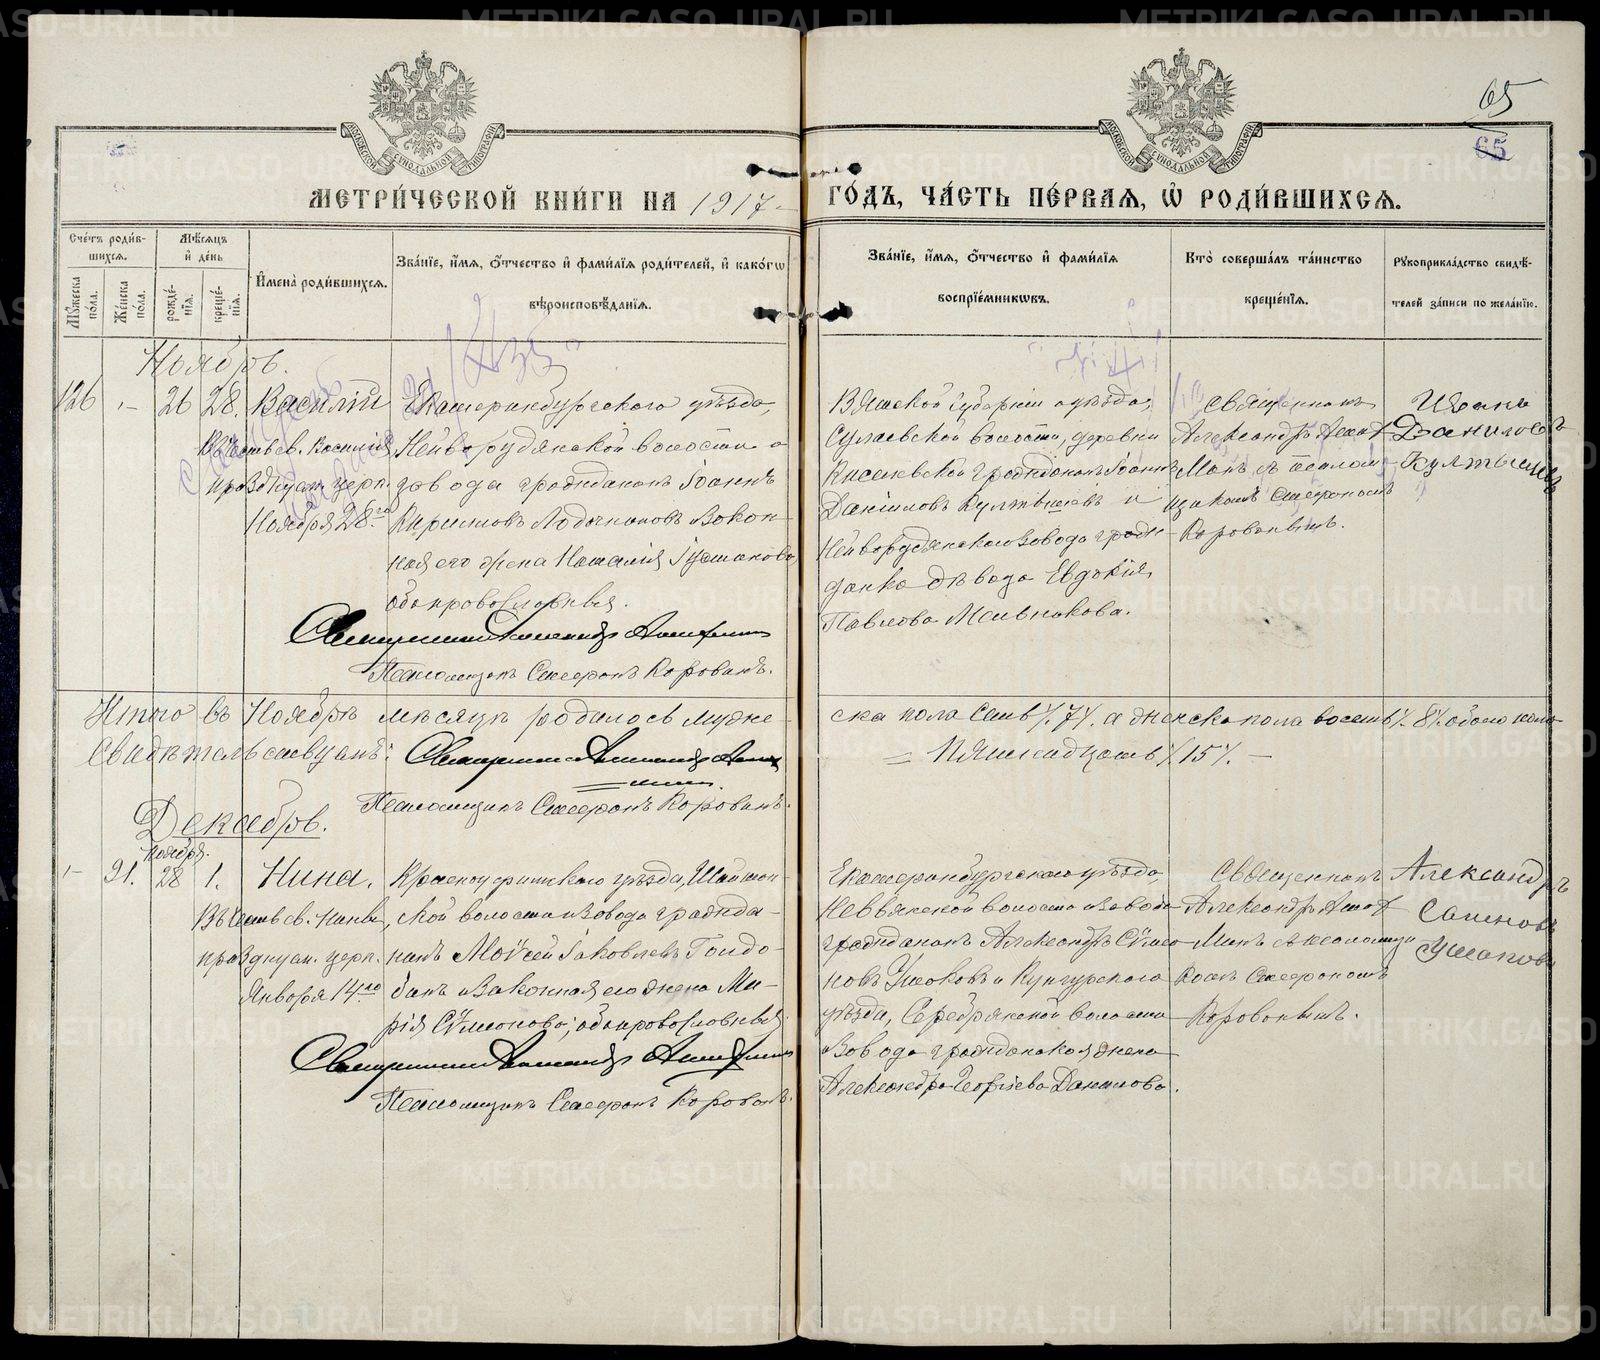 65
65
МЕТРИ́ЧЕСКОЙ КНИ́ГИ НА 1917 ГО́ДЪ, ЧА́СТЬ ПЕ́РВАЯ, Ѡ РОДИ́ВШИХСЯ.
Сче́тъ роди́в-
шихся.
Му́жеска
по́ла.
Же́нска
по́ла.
Мѣ́сяцъ
и́ де́нь
рожде́-
нія.
креще́-
нія.
И҆мена̀ роди́вшихся.
Зва́ніе, и҆́мя, ѻ҆́тчество и҆ фами́лія роди́телей, и҆ како́гѡ
вѣроисповѣ́данія.
Зва́ніе, и҆́мя, ѻ҆́тчество и҆ фами́лія
воспріе́мникѡвъ.
Кто̀ соверша́лъ та́инство
креще́нія.
Рукоприкла́дство свидѣ́-
телей за́писи по жела́нію.
Ноябрь.
126 - 26 28. Василій
Въ честь св. Василія
празднуем. церк.
Ноября 28го
Екатеринбургскаго уѣзда,
Нейворудянской волости и
завода гражданинъ Іоаннъ
Кирилловъ Лодочниковъ и закон-
ная его жена Наталія
оба православные.
Священникъ Александръ
Псаломщикъ Симеонъ Корованъ.
Вятской губерніи и уѣзда,
волости, деревни
гражданинъ Іоаннъ
Даніиловъ Култышевъ и
Нейворудянскаго завода граж-
данка дѣвица Евдокія
Павлова Мельникова.
Священникъ
Александръ
Корованымъ.
Иванъ
Даниловъ
Култышевъ
Итого въ Ноябрѣ мѣсяцѣ родилось муже-
ска пола семь /7/. а женска пола восемь /8/. обоего пола
= Пятнадцать /15/. -
Свидѣтельствуемъ: Священникъ Александръ
Псаломщикъ Симеонъ Корованъ.
Декабрь.
Ноября.
- 91. 28 1. Нина.
Въ честь св. Нины,
празднуем. церк.
Января 14го
Красноуфимскаго уѣзда, Шайтан-
ской волости и завода гражда-
нинъ Моѵсей Іаковлевъ
и законная его жена Ма-
рія Сѵмеонова; оба православные.
Священникъ Александръ
Псаломщикъ Симеонъ Корованъ.
Екатеринбургскаго уѣзда,
Невьянской волости и завода
гражданинъ Александръ Сѵмео-
новъ Ушаковъ и Кунгурскаго
уѣзда, Серебрянской волости
и завода гражданская жена
Александра Георгіева Данилова.
Священникъ
Александръ
Корованымъ.
Александръ
Семеновъ
Ушаковъ
METRIKI.GASO-URAL.RU